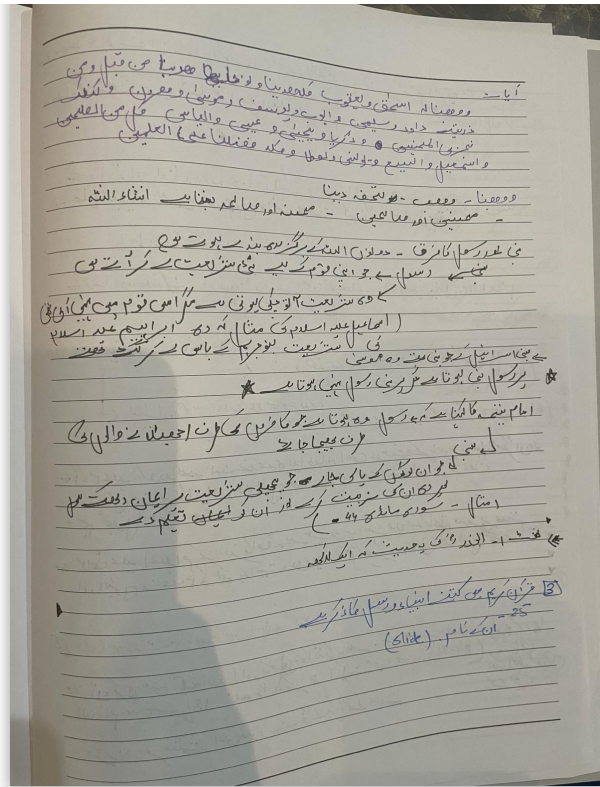 آیات
ووهبنا له اسحٰق ويعقوب كلا هدينا ونوحا هدينا من قبل ومن
ذريته داود وسليمن وايوب ويوسف وموسى وهرون وكذلك
نجزى المحسنين وزكريا ويحيى وعيسى والياس كل من الصلحين
واسمعيل واليسع ويونس ولوطا وكلا فضلنا على العلمين
ووهبنا - وهب - تحفہ دینا
- محسنین اور صالحین - محسن اور صالح بننا ہے انشاء اللہ
نبی اور رسول کا فرق - دونوں اللہ کے برگزیدہ بندے ہوتے ہیں
رسول ← جو اپنی قوم کے لیے نئی شریعت لے کر آتے ہیں
وہ شریعت نئی ہوتی ہے مگر اس قوم میں نہیں آئی تھی
(اسماعیل علیہ اسلام کی مثال کہ وہ ابراہیم علیہ اسلام
کی شریعت بنو جرہم کے پاس لے کر گئے تھے
ہر رسول نبی ہوتا ہے مگر ہر نبی رسول نہیں ہوتا ہے
امام تیمیہ کا کہنا ہے کہ رسول وہ ہوتا ہے جو کافروں کی طرف
طرف بھیجا جائے
نبی
جو ان لوگوں کے پاس جائے جو پہلی شریعت پر ایمان رکھتے ہیں
پھر وہ ان کی تربیت کرے اور ان کو تعلیم دے
(مثال - سورہ مائدہ 44)
حدیث کہ ایک لاکھ
[3] قرآن کریم میں کتنے انبیاء و رسل کا ذکر ہے
25 - ان کے نام. (slide)